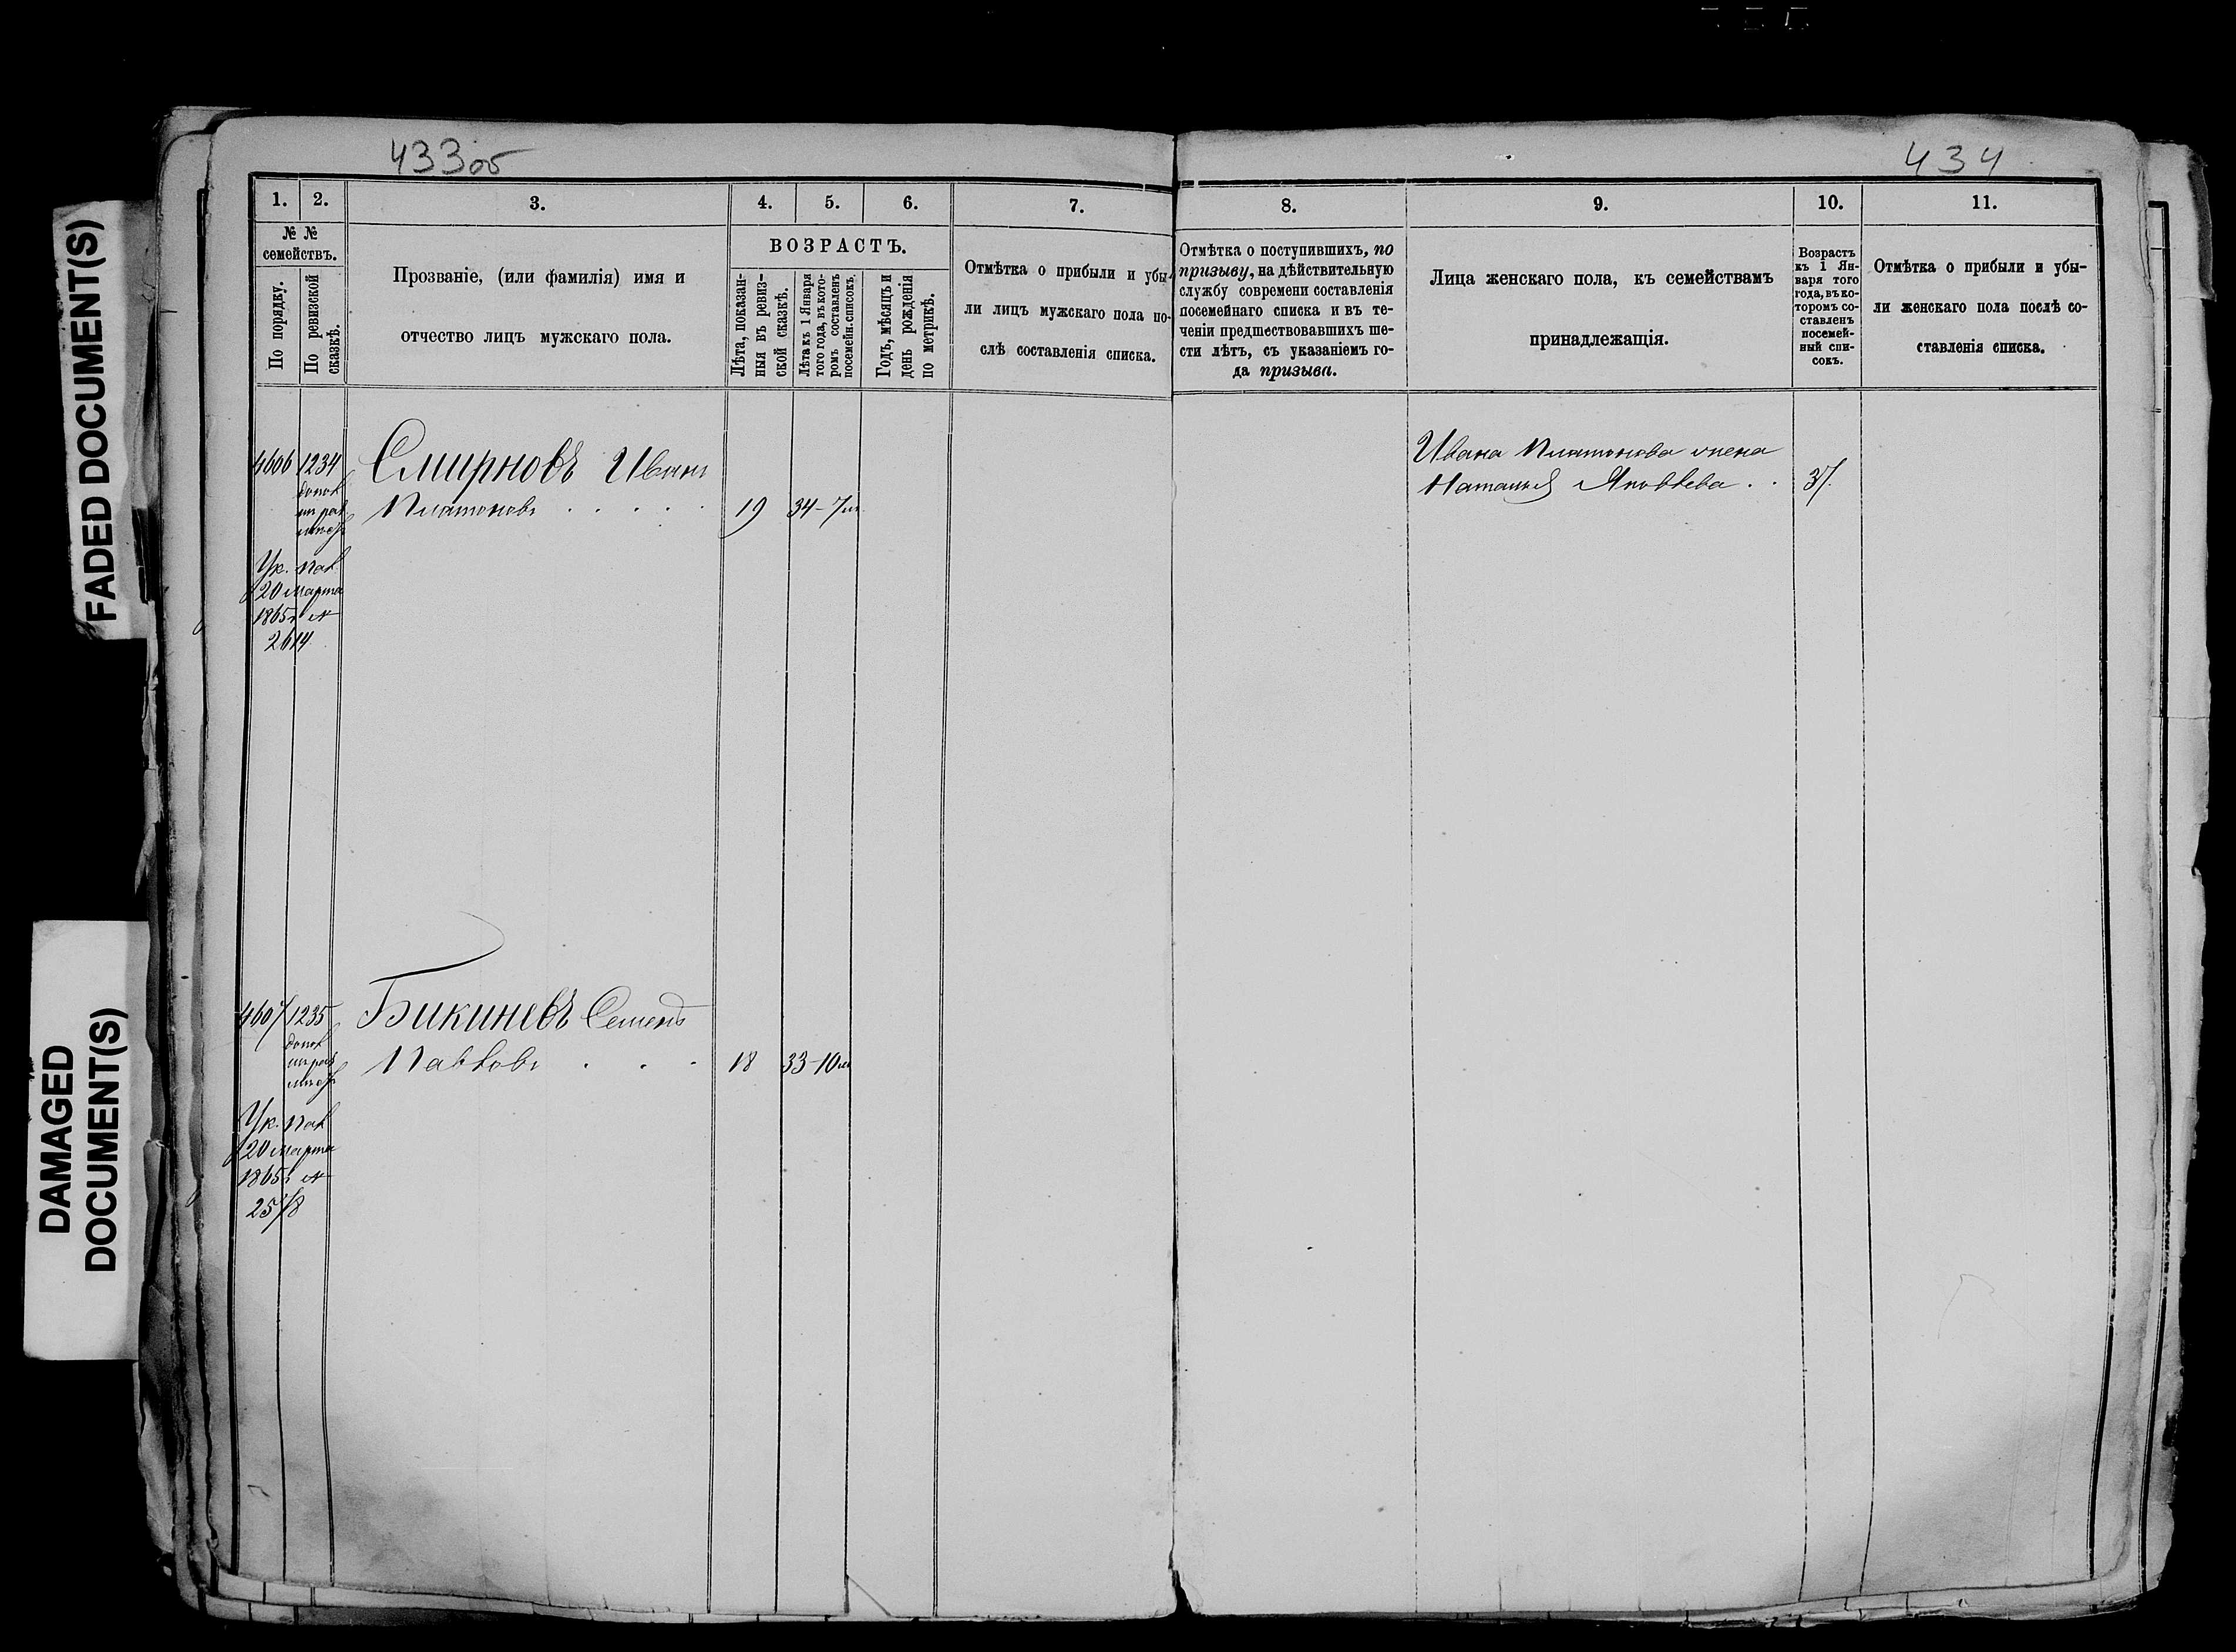 FADED DOCUMENT(S)
DAMAGED
DOCUMENT(S)
433об
434
1. 2. 3. 4. 5. 6. 7. 8. 9. 10. 11.
№ №
семействъ.
По порядку.
По ревизской
сказкѣ.
Прозваніе, (или фамилія) имя и
отчество лицъ мужскаго пола.
ВОЗРАСТЪ.
Лѣта, показан-
ныя въ ревиз-
ской сказкѣ.
Лѣта къ 1 Января
того года, въ кото-
ромъ составленъ
посемейн. списокъ.
Годъ, мѣсяцъ и
день рожденія
по метрикѣ.
Отмѣтка о прибыли и убы-
ли лицъ мужскаго пола по-
слѣ составленія списка.
Отмѣтка о поступившихъ, по
призыву, на дѣйствительную
службу современи составленія
посемейнаго списка и въ те-
ченіи предшествовавшихъ ше-
сти лѣтъ, съ указаніемъ го-
да призыва.
Лица женскаго пола, къ семействамъ
принадлежащія.
Возрастъ
къ 1 Ян-
варя того
года, въ ко-
торомъ со-
ставленъ
посемей-
ный спи-
сокъ.
Отмѣтка о прибыли и убы-
ли женскаго пола послѣ со-
ставленія списка.
4606 1234
Смирновъ Иванъ
Платоновъ 19 34-7м
Ивана Платонова жена
Наталья Яковлева 37.
Ук. пал
20 марта
1865 г №
2614.
4607 1235
Бикиневъ Семенъ
Павловъ 18 33-10м
Ук. пал
20 марта
1865 г №
2578